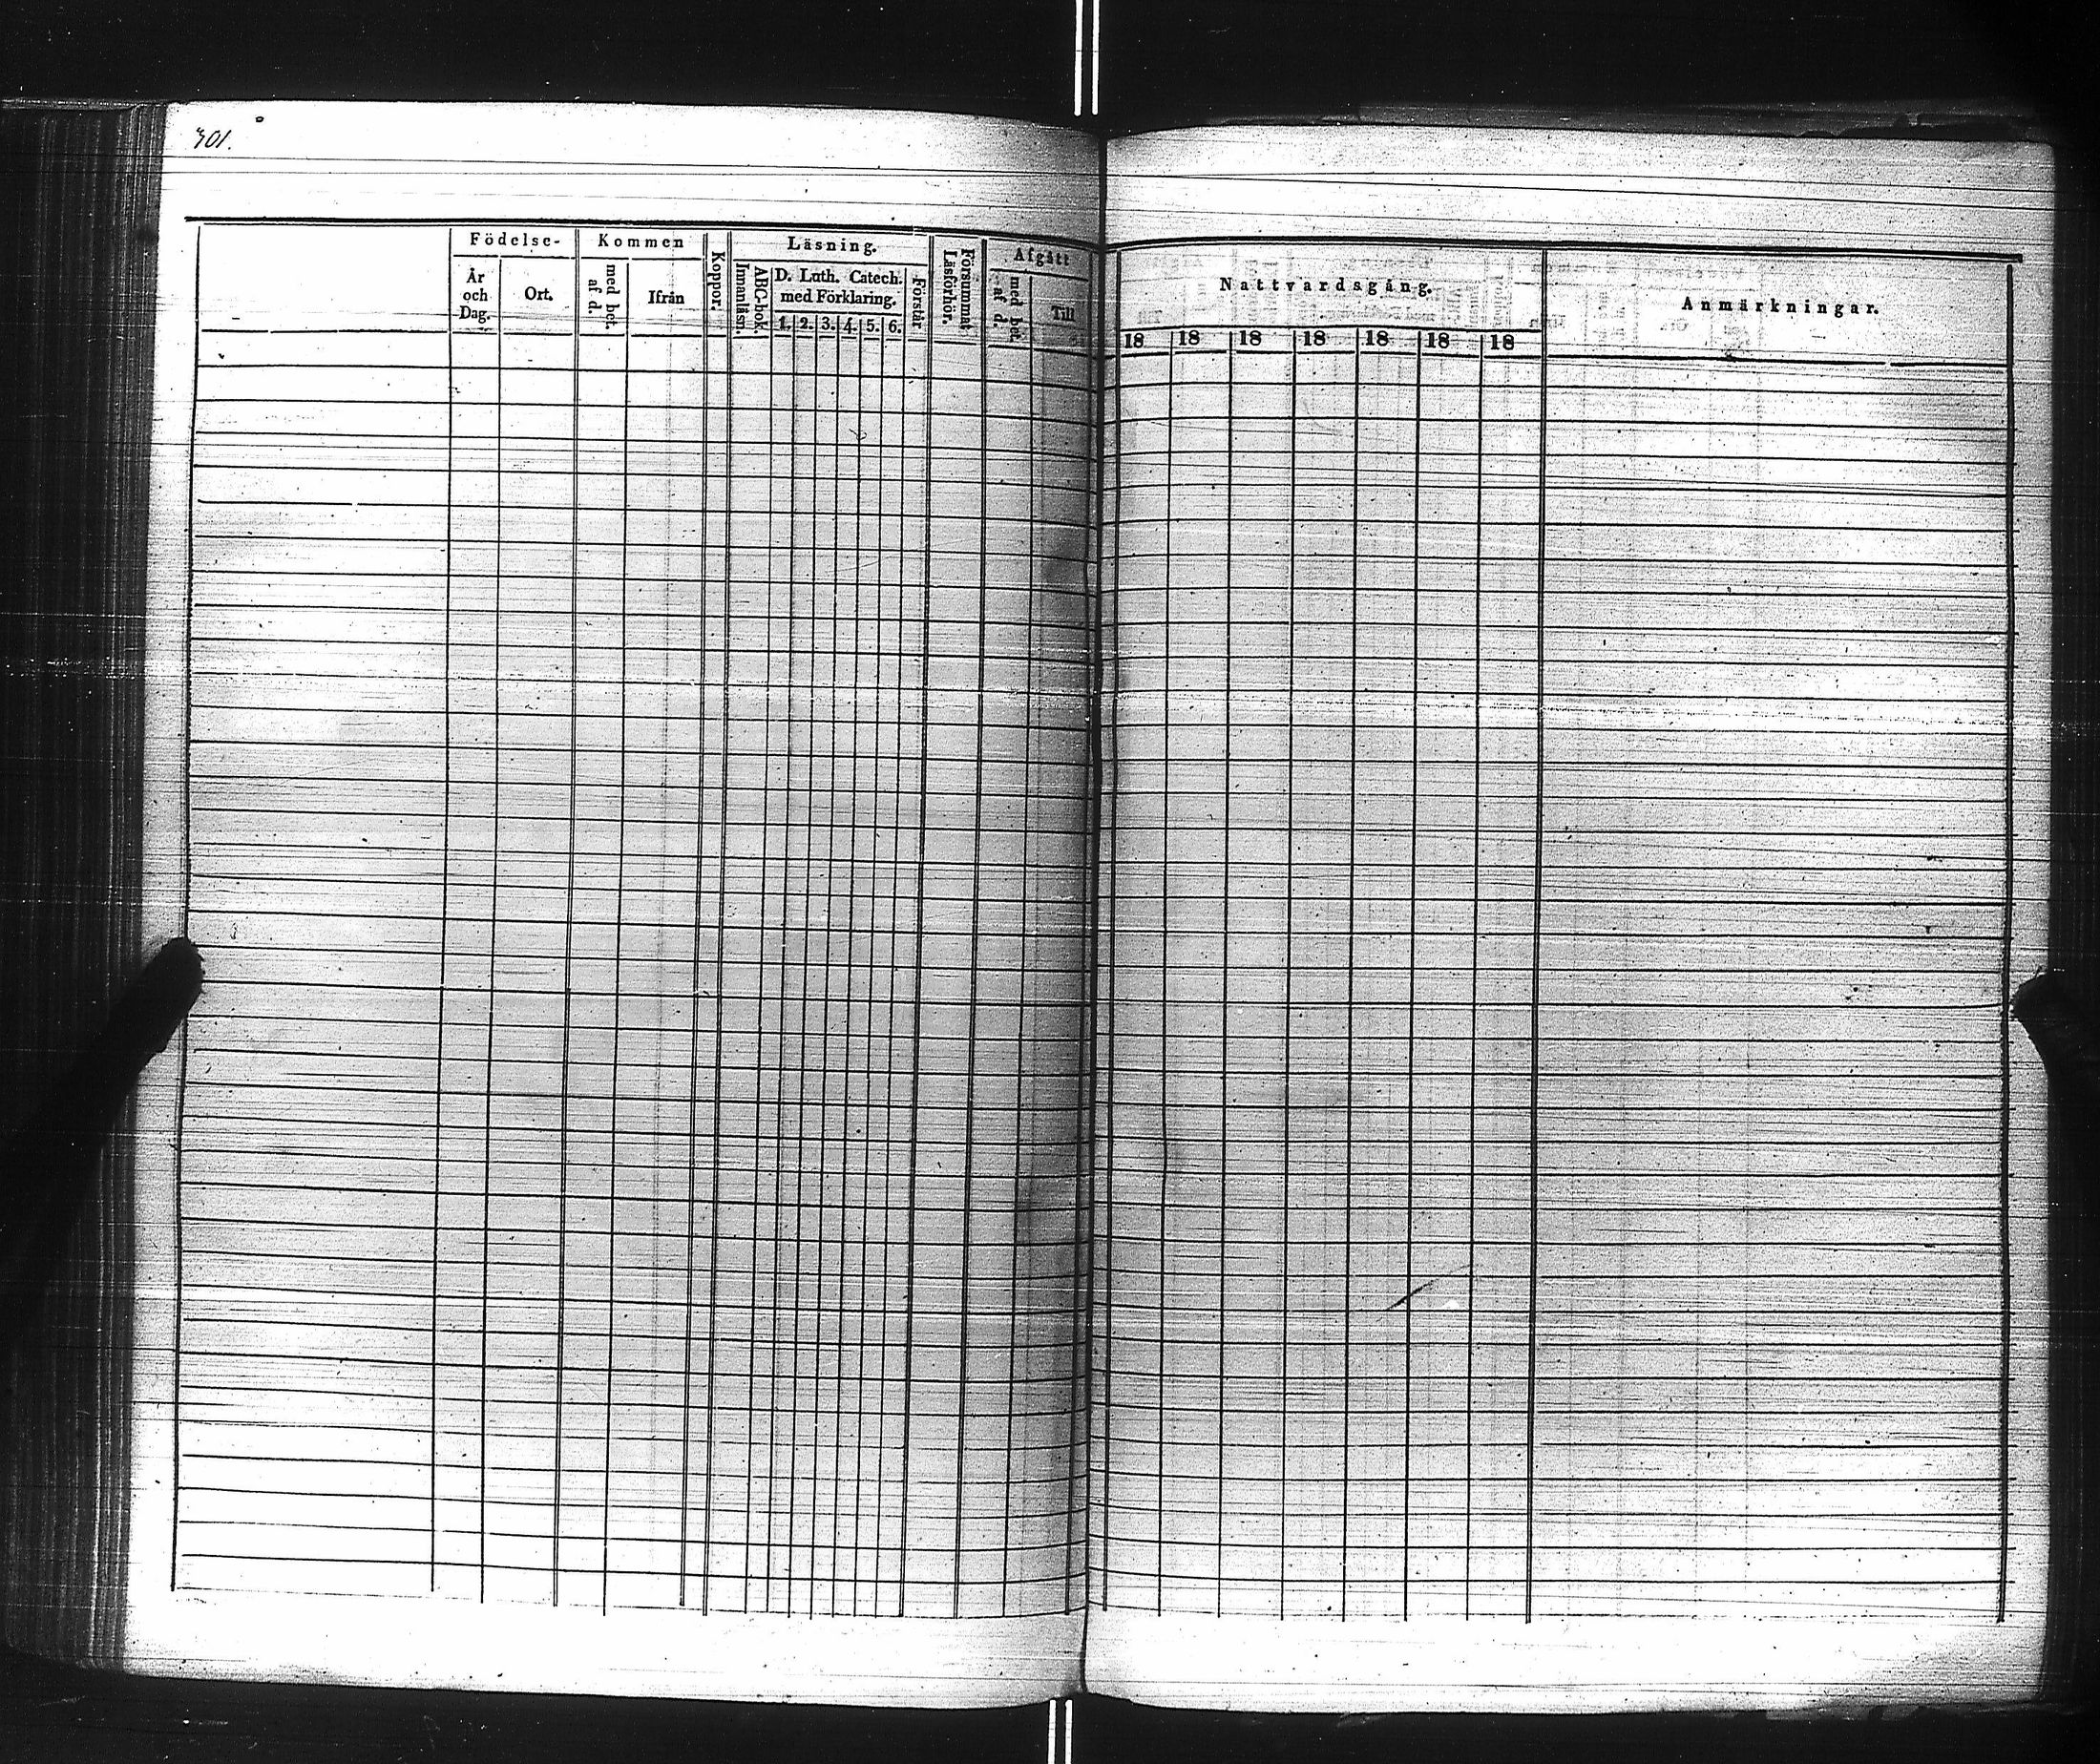 301.
Födelse-
År
och
Dag.
Ort.
Kommen
med bet.
af d.
Ifrån
Koppor.
Läsning.
ABC-bok.
Innanläsn.
D. Luth. Catech.
med Förklaring.
1. 2. 3. 4. 5. 6.
Förstår
Försummat
Läsförhör.
Afgått
med bet.
af d.
Till
Nattvardsgång.
18 18 18 18 18 18 18
Anmärkningar.